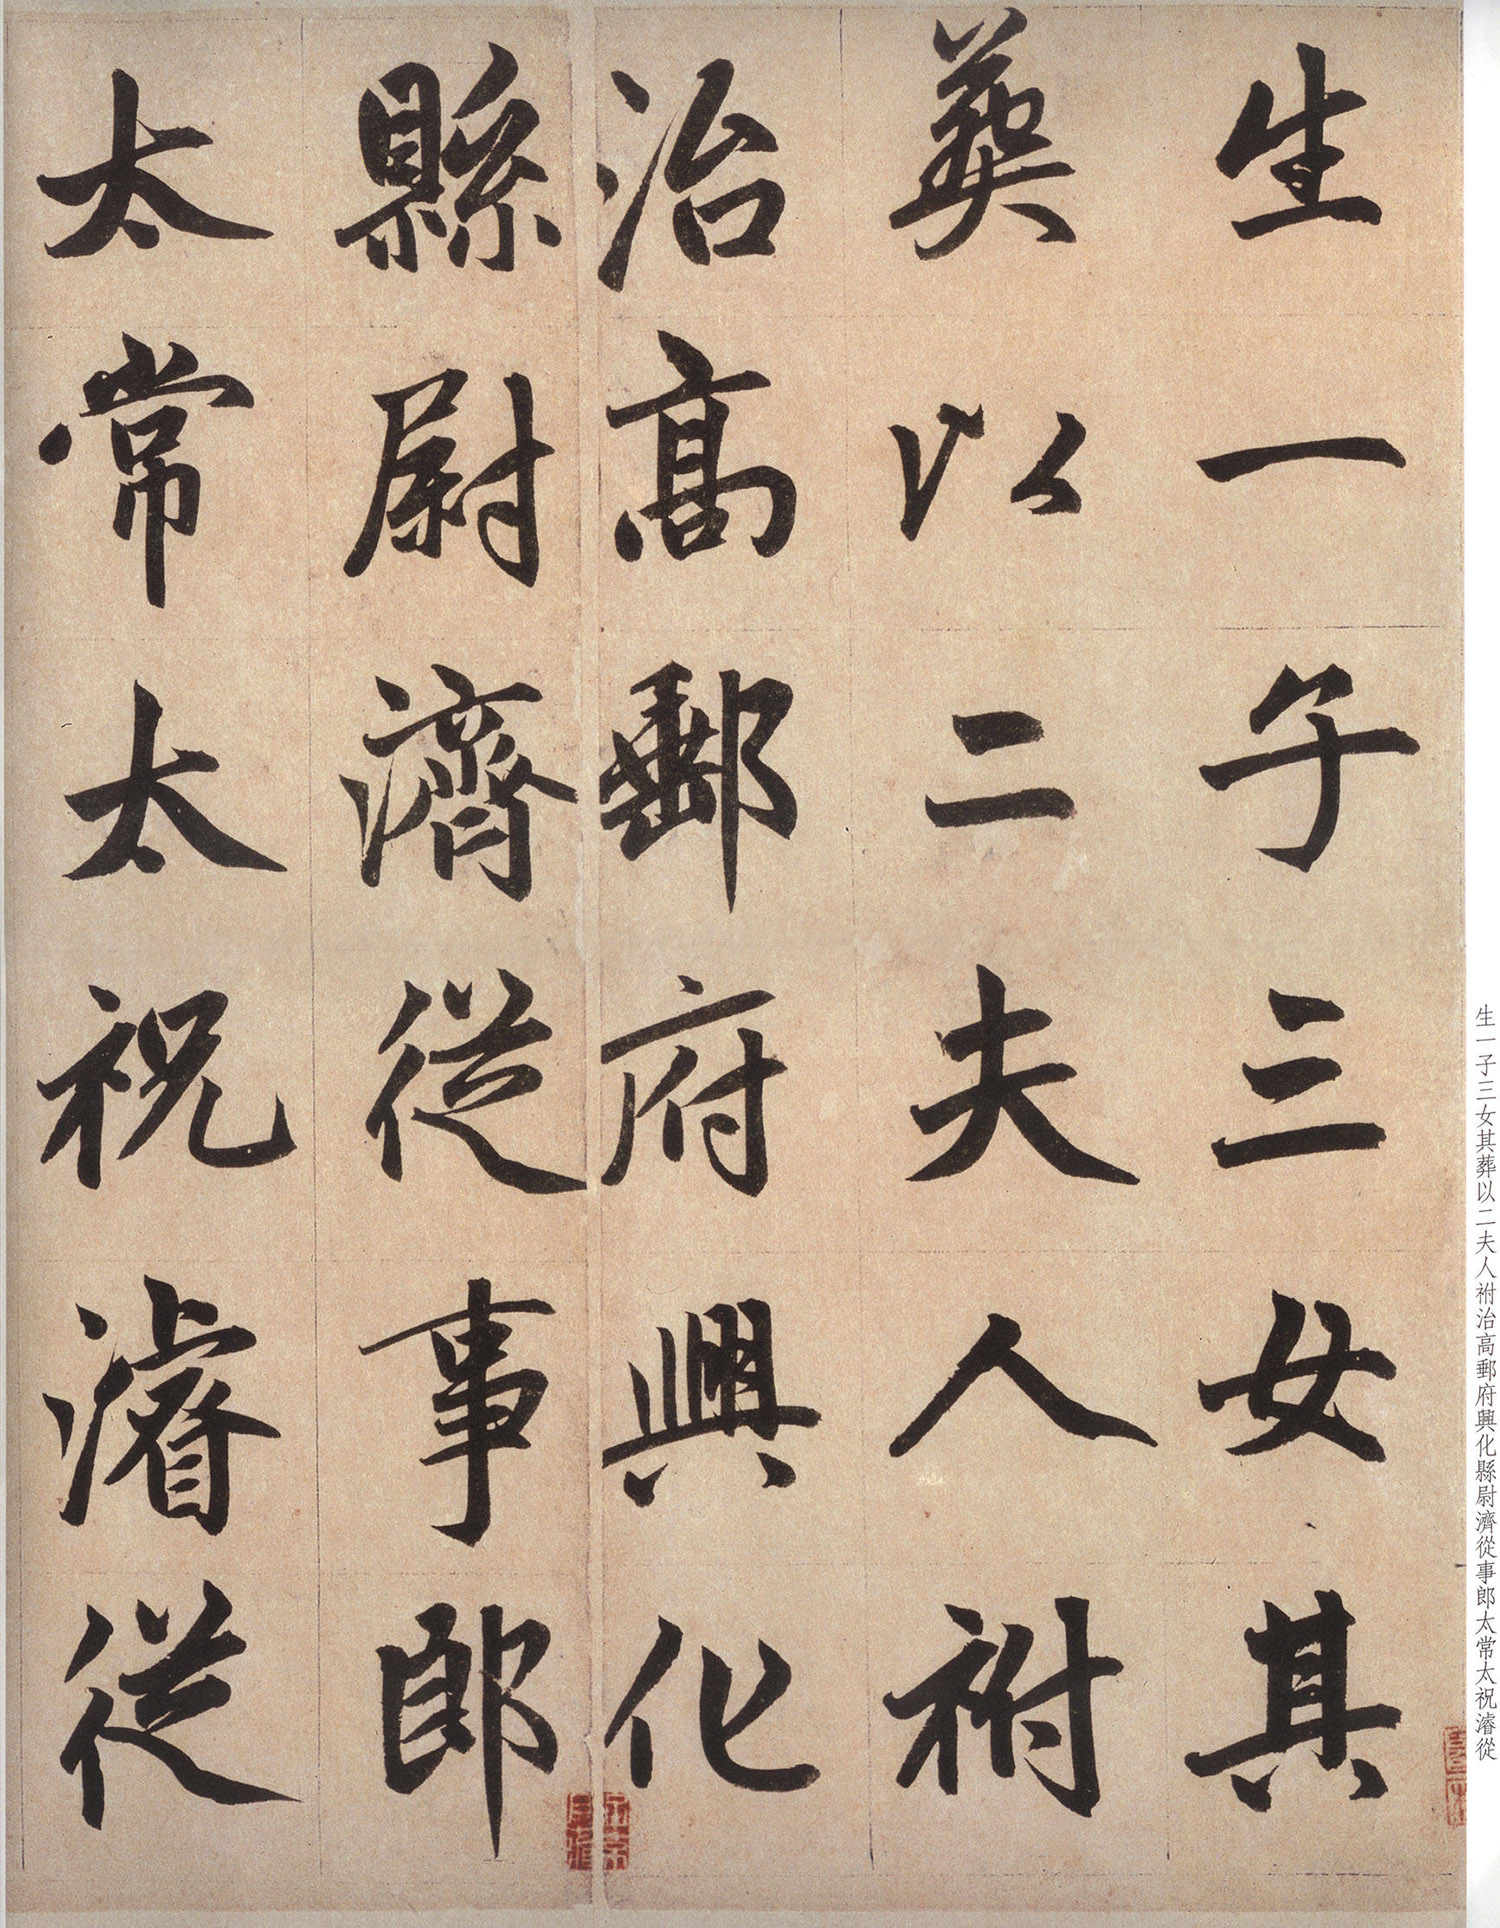 生一子三女其
葬以二夫人祔
治高郵府興化
縣尉濟從事郎
太常太祝濬從
生一子三女其葬以二夫人祔治高郵府興化縣尉濟從事郎太常太祝濬從